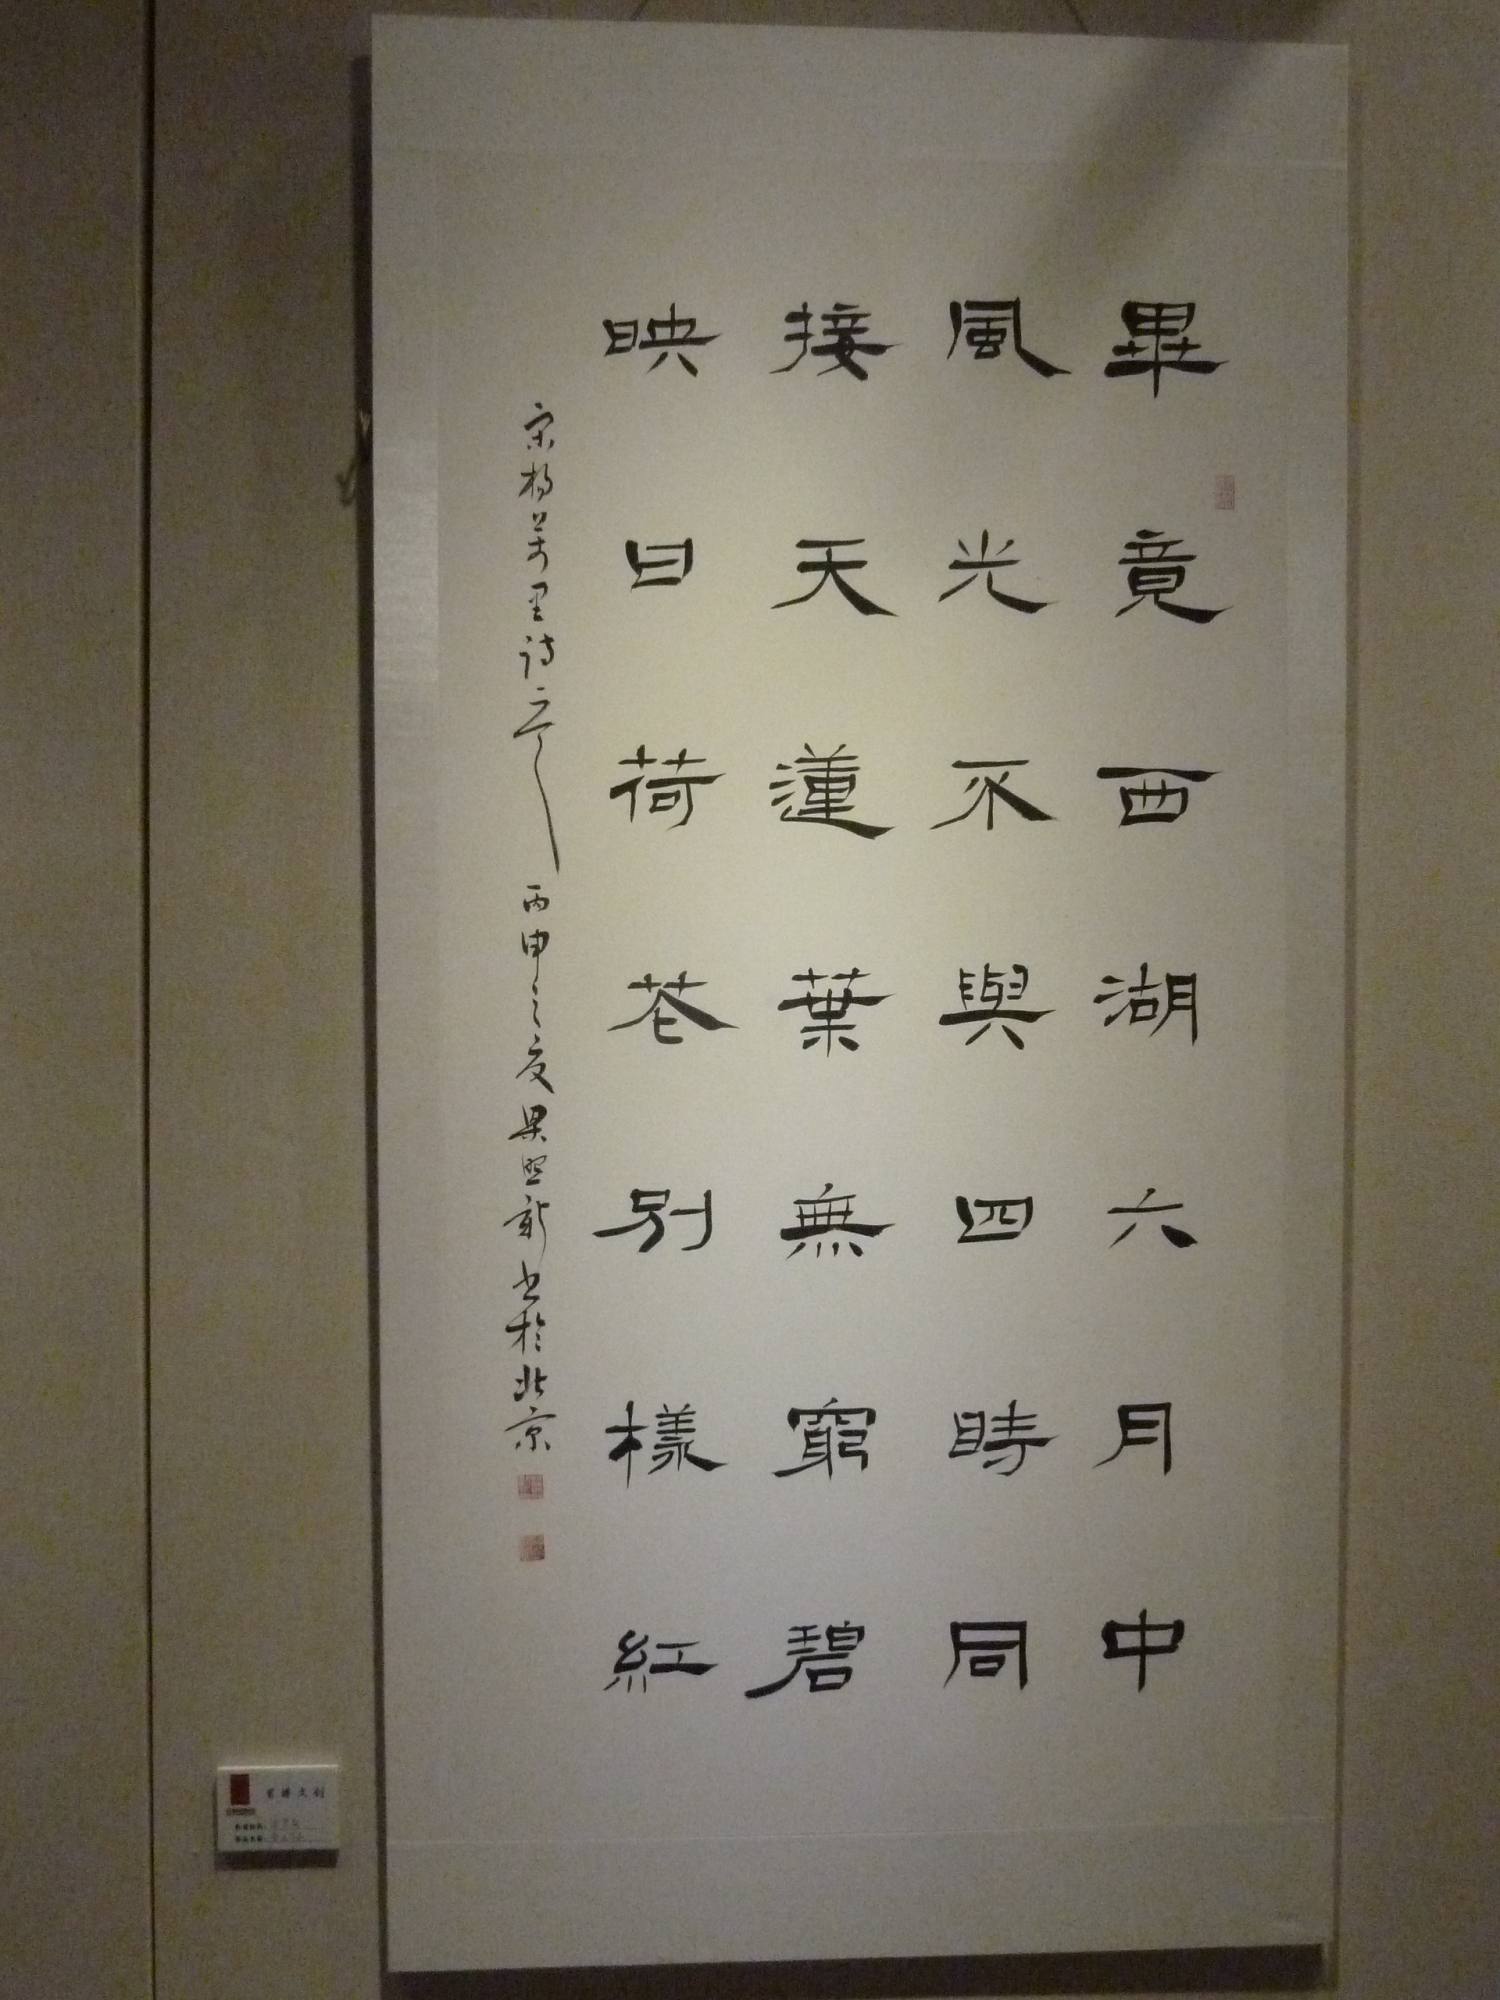 畢竟西湖六月中
風光不與四時同
接天蓮葉無窮碧
映日荷花別樣紅
宋楊萬里詩一首 丙申之夏梁照新書於北京